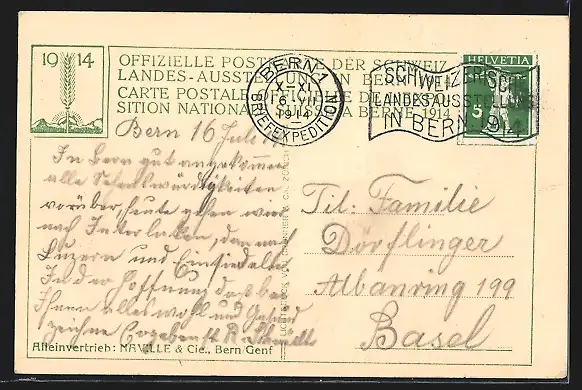 1914
OFFIZIELLE POST DER SCHWEIZ.
LANDES-AUSSTELLUNG IN BERN
CARTE POSTALE OFFICIELLE DE
SITION NATIONALE SUISSE A BERNE 1914
BERN 1
X-XI
16.VII
1914
BRIEFEXPEDITION
SCHWEIZERISCHE
LANDESAUSSTELLUNG
IN BERN 1914
HELVETIA
5
Bern 16 Juli 14
In Bern gut angekommen
alle Sehenswürdigkeiten
vorüber, heute gehen wir
nach Interlaken, dan nach
Luzern und Einsiedeln
In der Hoffnung daß bei
Ihnen alles wohl und Gesund
zeichne Ergebenst R.
Tit. Familie
Dörflinger
Albanring 199
Basel
Alleinvertrieb: NAVILLE & Cie., Bern Genf